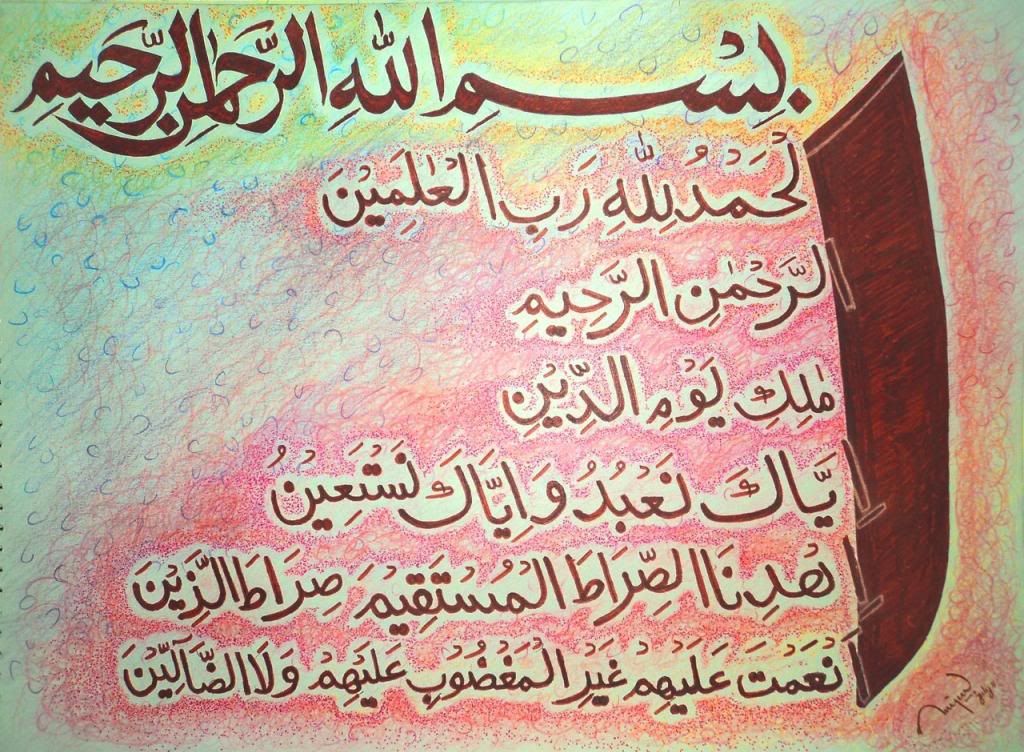 بِسْمِ اللهِ الرَّحْمٰنِ الرَّحِيْمِ
الْحَمْدُ لِلّٰهِ رَبِ الْعٰلَمِيْنَ
الرَّحْمٰنِ الرَّحِيْمِ
مٰلِكِ يَوْمِ الدِّيْنِ
اِيَّاكَ نَعْبُدُ وَاِيَّاكَ نَسْتَعِيْنُ
اهْدِنَا الصِّرَاطَ الْمُسْتَقِيْمَ صِرَاطَ الَّذِيْنَ
اَنْعَمْتَ عَلَيْهِمْ غَيْرِ الْمَغْضُوْبِ عَلَيْهِمْ وَلَا الضَّآلِّيْنَ